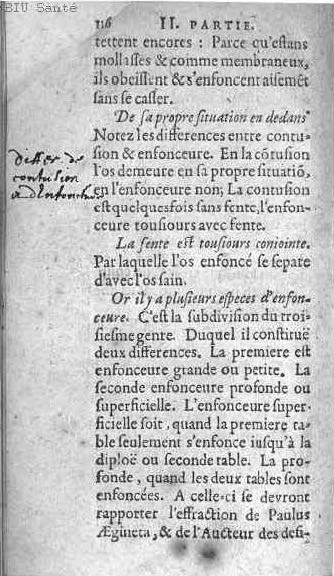 BIU Santé
116 II. PARTIE.
tettent encores : Parce qu'estans
mollasses & comme membraneux,
ils obeissent & s'enfoncent aisemẽt
sans se casser.
De sa propre situation en dedans
Notez les differences entre contu-
sion & enfonceure. En la cõtusion
l'os demeure en sa propre situatiõ,
en l'enfonceure non; La contusion
est quelquesfois sans fente, l'enfon-
ceure tousiours avec fente.
La fente est tousiours coniointe.
Par laquelle l'os enfoncé se separe
d'avec l'os sain.
Or il y a plusieurs especes d'enfon-
ceure. C'est la subdivision du troi-
siesme genre. Duquel il constituë
deux differences. La premiere est
enfonceure grande ou petite. La
seconde enfonceure profonde ou
superficielle. L'enfonceure super-
ficielle soit, quand la premiere ta-
ble seulement s'enfonce iusqu'à la
diploë ou seconde table. La pro-
fonde, quand les deux tables sont
enfoncées. A celle-ci se devront
rapporter l'effraction de Paulus
Ægineta, & de l'Aucteur des defi-
differ. de
contusion